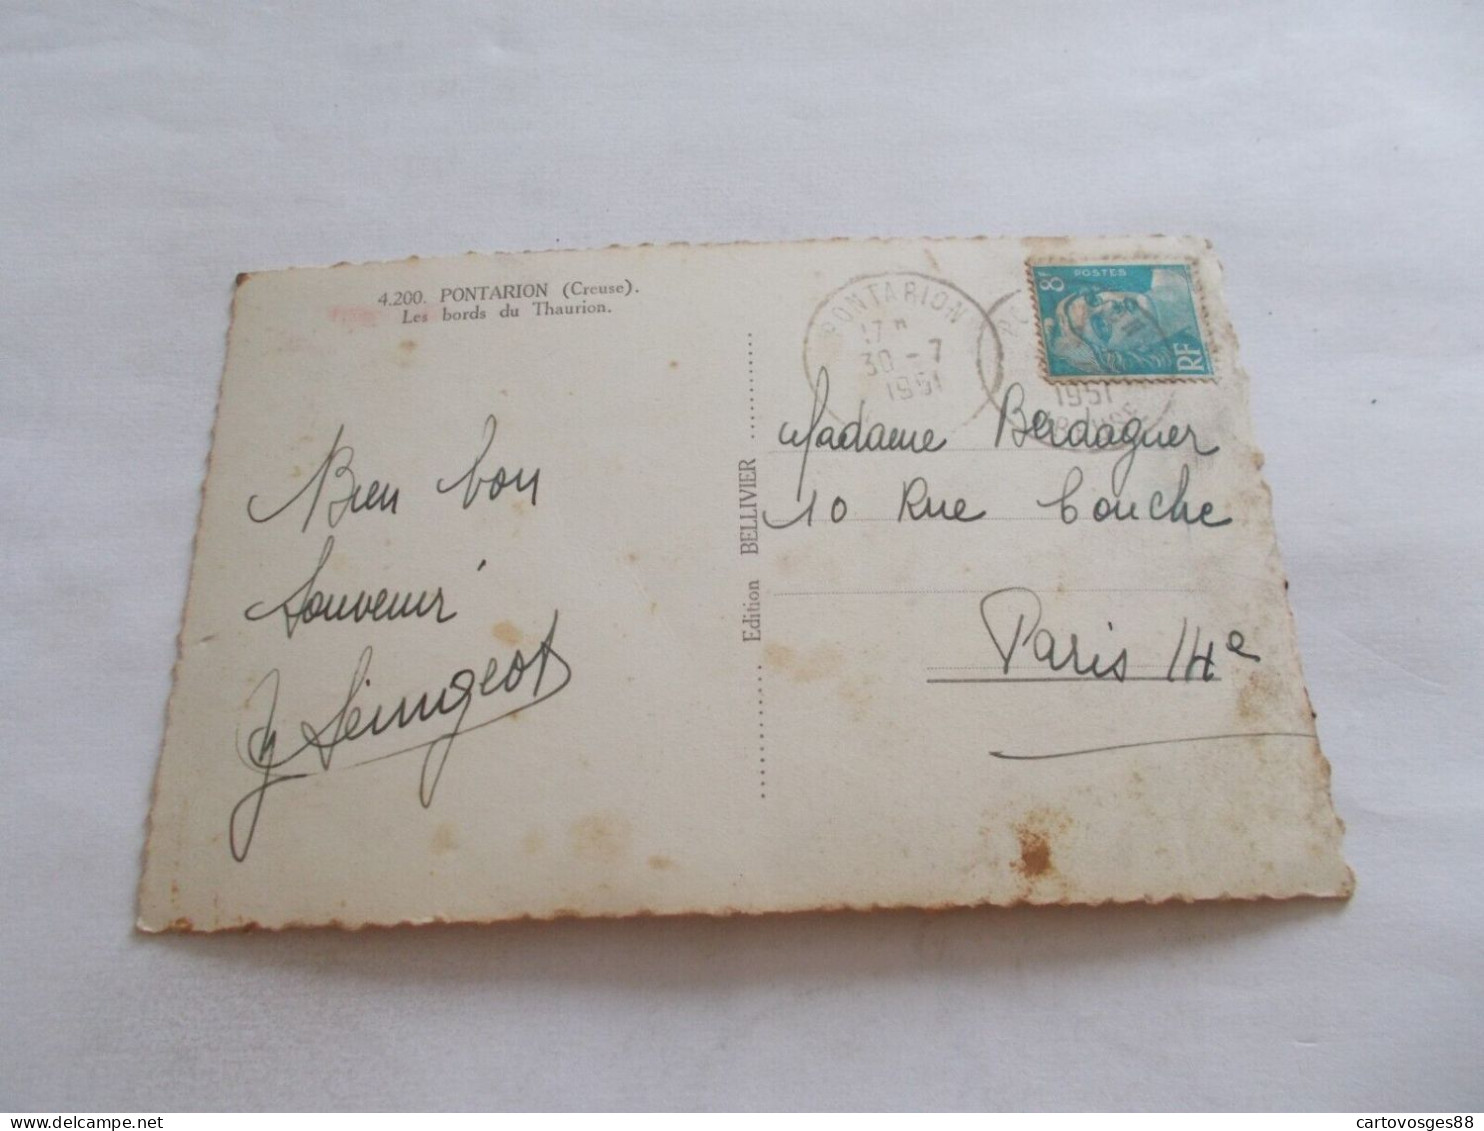 4.200. PONTARION (Creuse).
Les bords du Thaurion.
Bien bon
Souvenir
Edition BELLIVIER
PONTARION
17 H
30 - 7
1951
8F
POSTES
RF
1951
CREUSE
Madame Berdaguer
10 Rue Couche
Paris 14e
cartovosges88